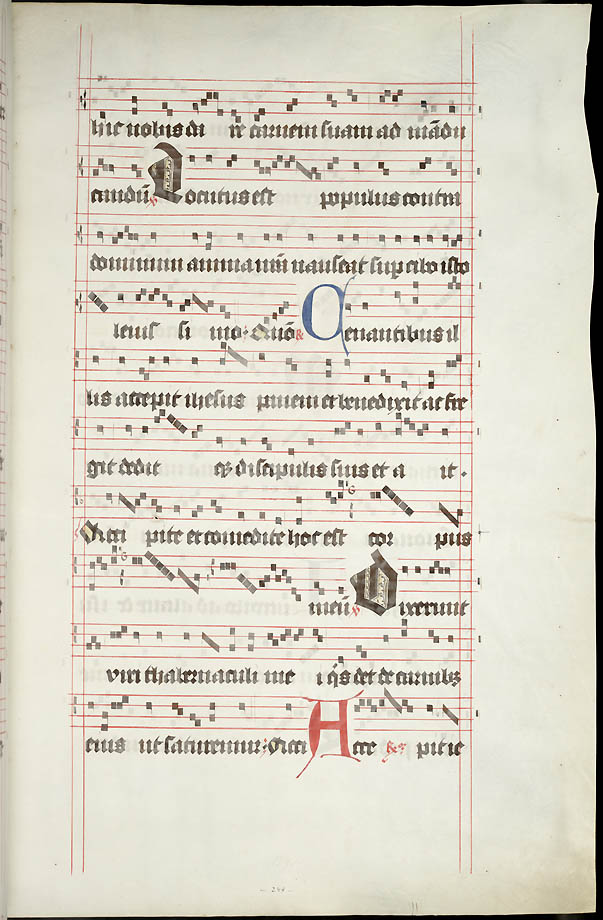 hic nobis da re carnem suam ad mādu
candū ℣ Locutus est populus contra
dominum anima nr̄a nauseat sup cibo isto
leuis si mo: Quō ℟ Cenantibus il
lis accepit ihesus panem et benedixit ac fre
git dedit qꝫ discipulis suis et a it.
Acci pite et comedite hoc est cor pus
meū ℣ Dixerunt
viri thabernaculi me i qs det de carnibꝫ
eius ut saturemur: Acci Acce pit ie